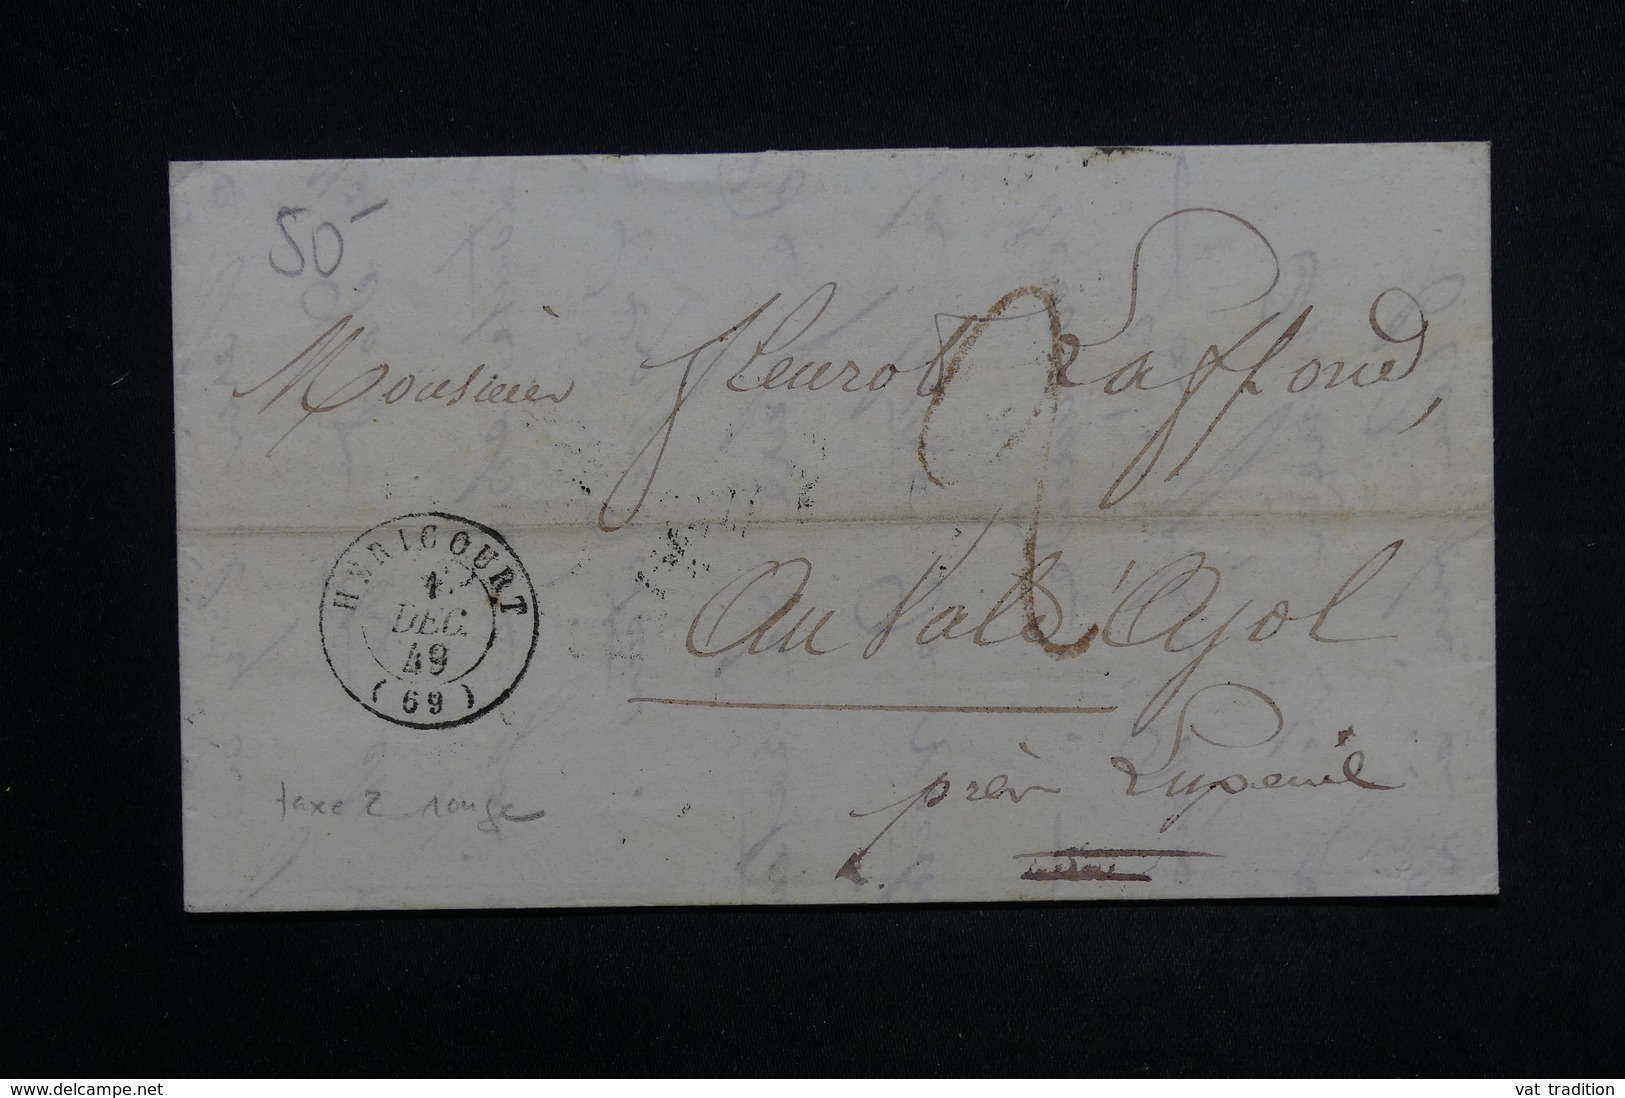 50-
Monsieur Fleurot Laffond,
2
HERICOURT
1
DEC.
49
(69)
Au Val d'Ajol
près Luxeuil
taxe 2 rouge
www.delcampe.net
vat tradition